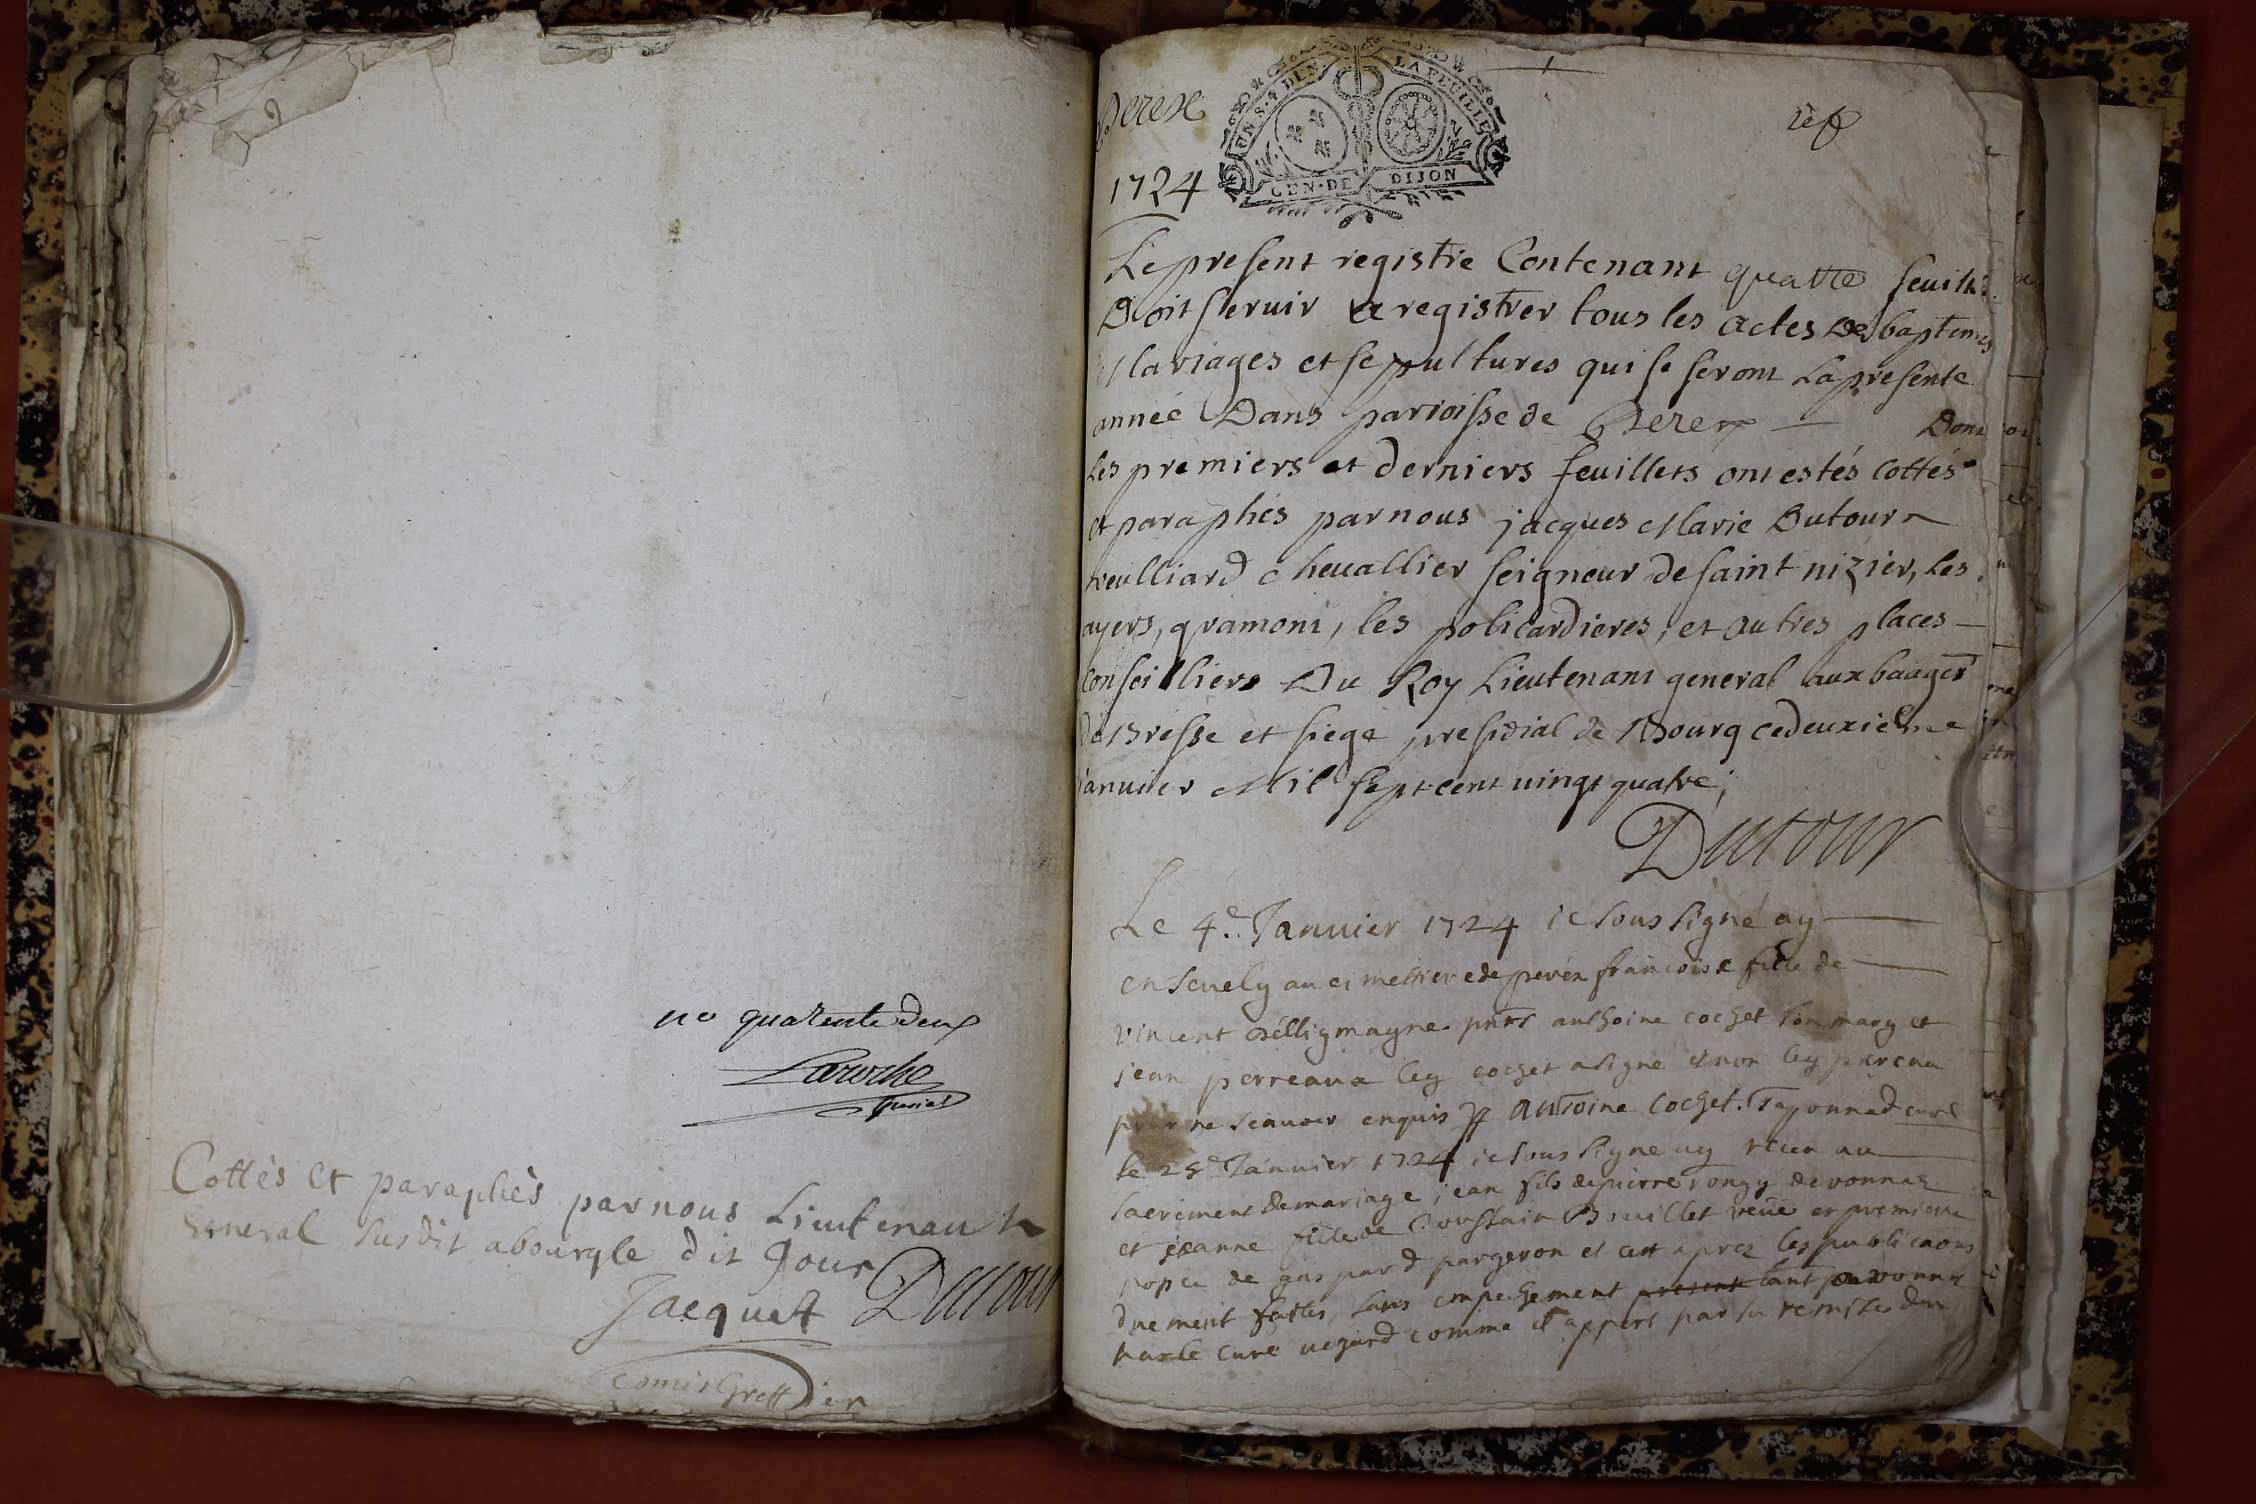 no quarente deux
Laroche
Cottés et paraphés par nous Lieutenant
General susdit a bourg le dit Jour
Jacquet Dutour
Comis Greffier
Perex
1724
UN S. 4 DEN. LA FEUILLE
GEN. DE DIJON
Le present registre Contenant quatre feuillets
Doit servir a registrer tous les actes De baptemes
Mariages et sepultures qui se feront La presente
année Dans parroisse de Perex Dont
Les premiers et derniers feuillets ont estés Cottés
et paraphés par nous jacques Marie Dutour
veulliard chevallier seigneur de saint nizier, Les
ayers, gramont, les policardieres, et autres places
Conseilliers Du Roy Lieutenant general aux bauges
de Bresse et siege presidial de Bourg ce deuxieme
januier Mil sept cent uingt quatre;
Dutour
Le 4e. Januier 1724 je sous signé ay
enseuely au cimettiere de perex francoise fille de
vincent pnts anthoine cochet son mary et
jean perreaux ley cochet a signé non ley
pour ne scauoir enquis Antoine Cochet. curé
le 25e Januier 1724 je sous signe ay receu au
sacrement de mariage jean fils de pierre rongy de vonnaz
et jeanne fille de Brevillet veüe en premiere
nopce de gaspard pargeron et cest aprez les publicaons
duement faittes, sans empechement present tant par vonnaz
par le curé comme il appert par sa remise du